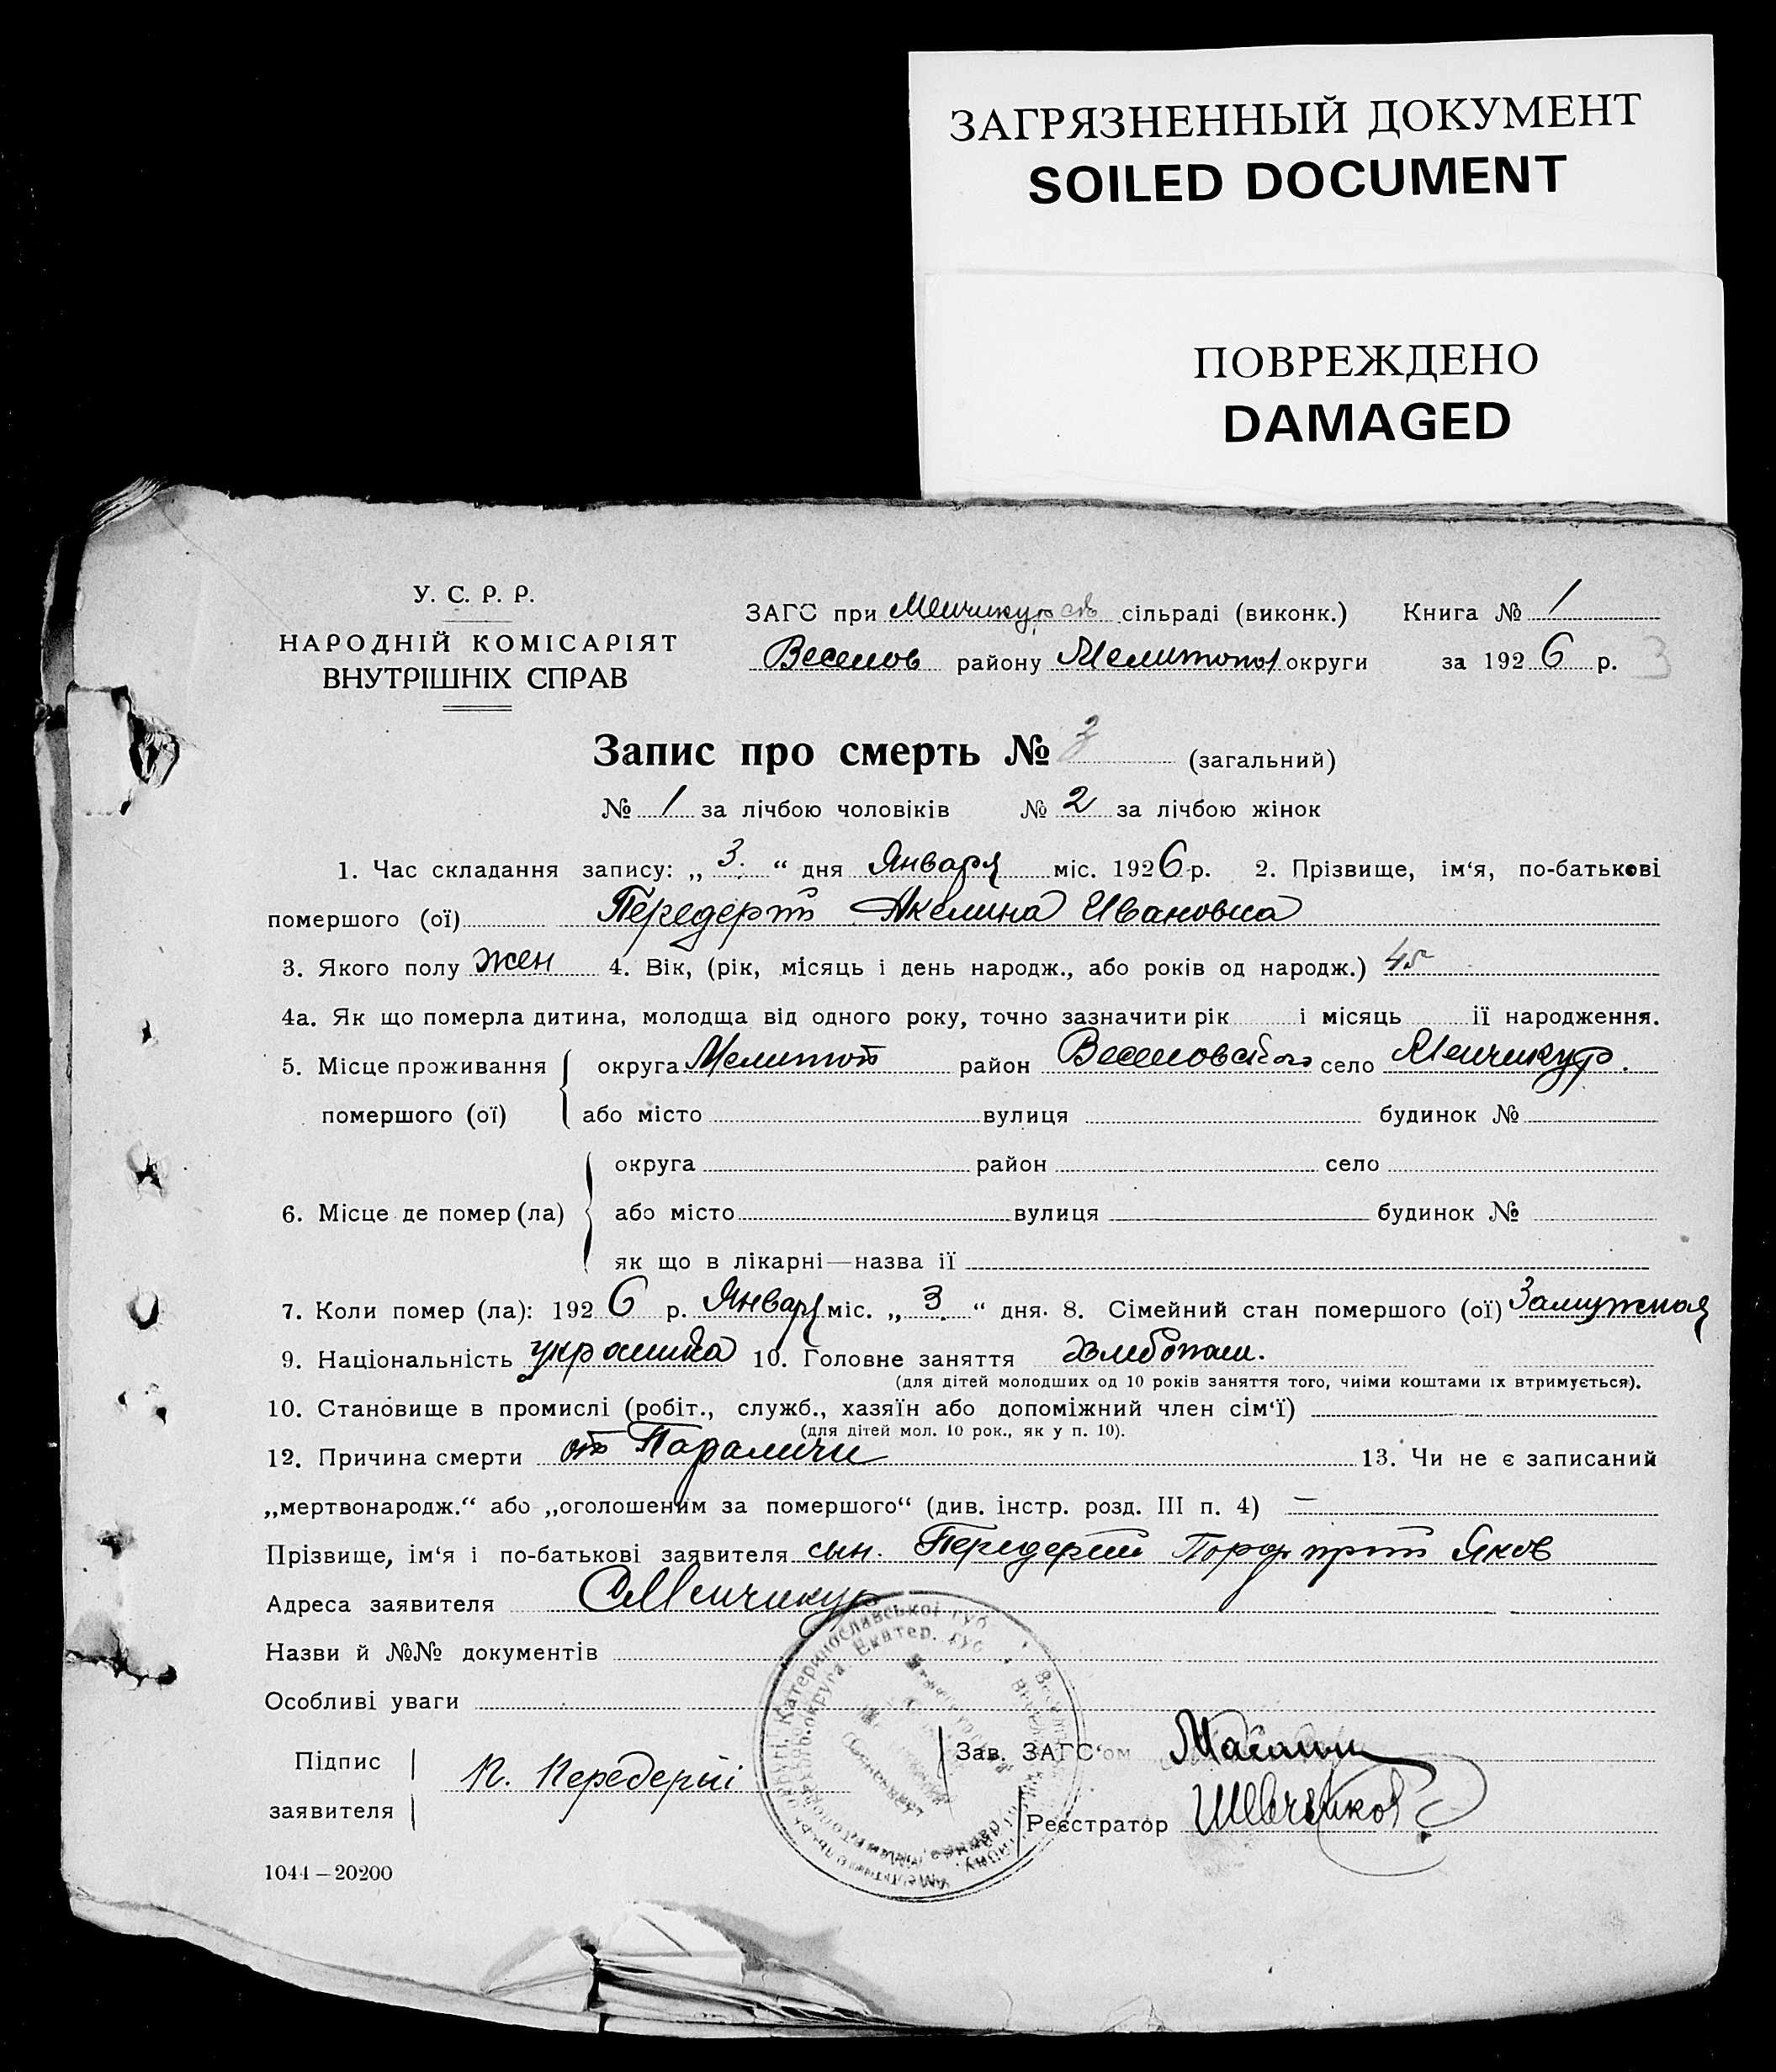 ЗАГРЯЗНЕННЫЙ ДОКУМЕНТ
SOILED DOCUMENT
ПОВРЕЖДЕНО
DAMAGED
У. С. Р. Р.
НАРОДНІЙ КОМІСАРІЯТ
ВНУТРІШНІХ СПРАВ
ЗАГС при Менчикур сільраді (виконк.) Книга № 1
Веселов району Мелитопол округи за 1926 р. 3
Запис про смерть № 3 (загальний)
№ 1 за лічбою чоловіків № 2 за лічбою жінок
1. Час складання запису: „ 3. “ дня Января міс. 1926 р. 2. Прізвище, ім‘я, по-батькові
помершого (ої) Передерій Акелина Ивановна
3. Якого полу жен 4. Вік, (рік, місяць і день народж., або років од народж.) 45
4а. Як що померла дитина, молодща від одного року, точно зазначити рік і місяць ії народження.
5. Місце проживання округа Мелитоп район Веселовского село Менчикур.
помершого (ої) або місто вулиця будинок №
округа район село
6. Місце де помер (ла) або місто вулиця будинок №
як що в лікарні—назва ії
7. Коли помер (ла): 1926 р. Января міс. „ 3 “ дня. 8. Сімейний стан помершого (ої) Замужная
9. Національність украинка 10. Головне заняття Хлебопаш.
(для дітей молодших од 10 років заняття того, чиіми коштами іх втримується).
10. Становище в промислі (робіт., служб., хазяїн або допоміжний член сім‘ї)
(для дітей мол. 10 рок., як у п. 10).
12. Причина смерти от Параличи 13. Чи не є записаний
„мертвонародж.“ або „оголошеним за помершого“ (див. інстр. розд. III п. 4) —
Прізвище, ім‘я і по-батькові заявителя сын. Передерий Яков
Адреса заявителя С Менчикур
Назви й №№ документів
Особливі уваги
Підпис
заявителя П. Передерій
Зав. ЗАГС‘ом
Реєстратор
1044—20200